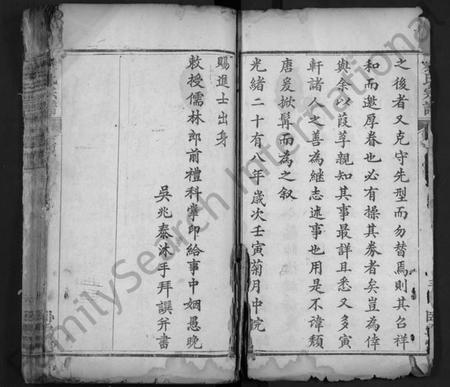 之後者又克守先型而勿替焉則其召祥
和而邀厚眷也必有操其券者矣豈為倖
與余以葭莩親知其事最詳且悉又多寅
軒諸人之善為繼志述事也用是不諱頽
唐爰掀髯而為之叙
光緒二十有八年歲次壬寅菊月中浣
賜進士出身
敕授儒林郎前禮科掌印給事中姻愚晚
吳兆泰沐手拜譔并書
FamilySearch International